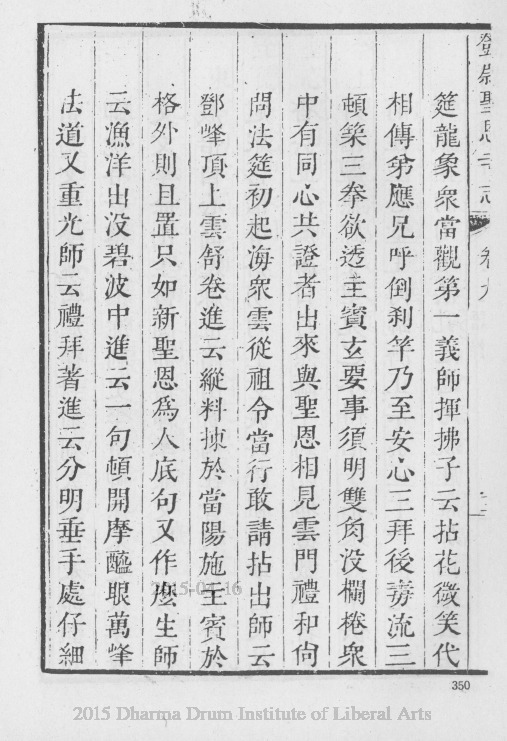 鄧尉聖恩寺志
卷九
筵龍象眾當觀第一義師揮拂子云拈花微笑代
相傳弟應兄呼倒剎竿乃至安心三拜後毒流三
頓築三拳欲透主賓玄要事須明雙角沒欄棬眾
中有同心共證者出來與聖恩相見雲門禮和尚
問法筵初起海眾雲從祖令當行敢請拈出師云
鄧峰頂上雲舒卷進云縱料揀於當陽施主賓於
格外則且置只如新聖恩為人底句又作麼生師
云漁洋出沒碧波中進云一句頓開摩醯眼萬峰
法道又重光師云禮拜著進云分明垂手處仔細
350
2015-04-16
2015 Dharma Drum Institute of Liberal Arts